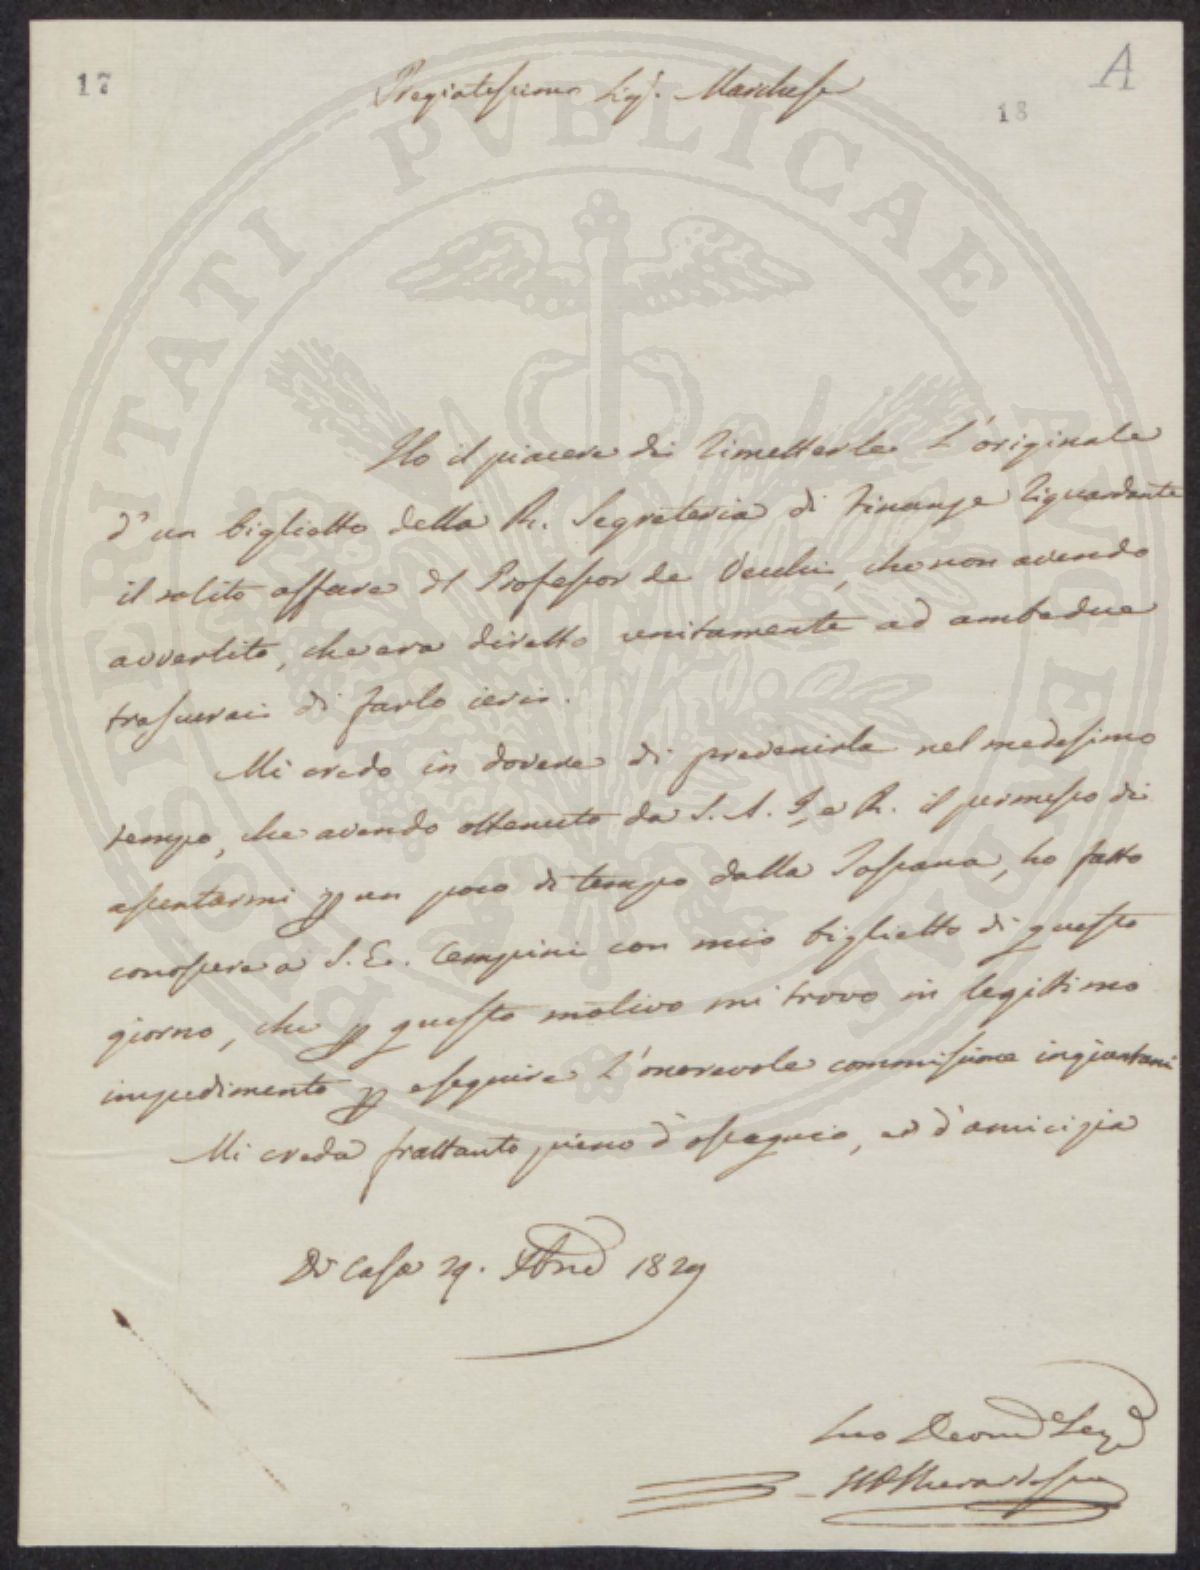 17
A
18
Pregiatissimo Sigr. Marchese
Ho il piacere di rimetterle l'originale
d'un biglietto della R. Segreteria di Finanze riguardante
il solito affare del Professor de Vecchi, che non avendo
avvertito, che era diretto unitamente ad ambedue
trascurai di farlo ieri.
Mi credo in dovere di prevenirla nel medesimo
tempo, che avendo ottenuto da S. A. I. e R. il permesso di
assentarmi p un poco di tempo dalla Toscana, ho fatto
conoscere a S. E. Cempini con mio biglietto di questo
giorno, che p questo motivo mi trovo in legittimo
impedimento p eseguire l'onorevole commissione ingiuntami
Mi creda frattanto pieno d'ossequio, ed d'amicizia
Di Casa 29. 1829
Suo
POSTERITATI PVBLICAE